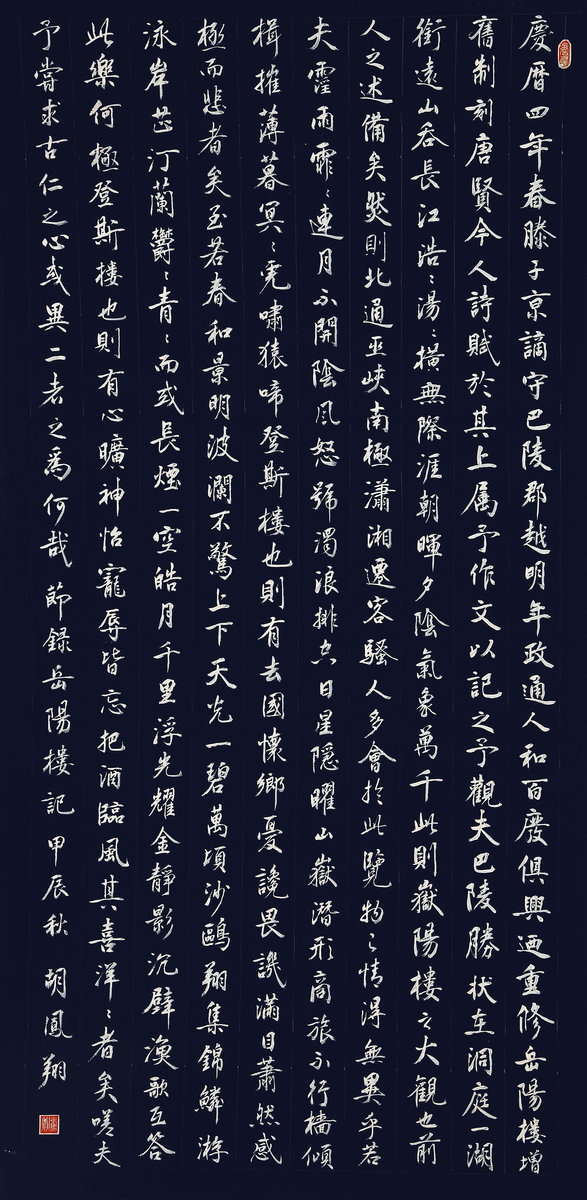 慶暦四年春滕子京謫守巴陵郡越明年政通人和百廢俱興迺重修岳陽樓增
舊制刻唐賢今人詩賦於其上属予作文以記之予觀夫巴陵勝状在洞庭一湖
銜遠山吞長江浩〻湯〻橫無際涯朝暉夕陰氣象萬千此則嶽陽樓之大觀也前
人之述備矣然則北通巫峽南極瀟湘遷客騷人多會於此覽物之情得無異乎若
夫霪雨霏〻連月不開陰風怒號濁浪排空日星隱曜山嶽潛形商旅不行檣傾
楫摧薄暮冥〻虎嘯猿啼登斯樓也則有去國懷鄉憂讒畏譏滿目蕭然感
極而悲者矣至若春和景明波瀾不驚上下天光一碧萬頃沙鷗翔集錦鱗游
泳岸芷汀蘭鬱〻青〻而或長煙一空皓月千里浮光耀金靜影沉璧漁歌互答
此樂何極登斯樓也則有心曠神怡寵辱皆忘把酒臨風其喜洋〻者矣嗟夫
予嘗求古仁之心或異二者之為何哉 節錄岳陽樓記 甲辰秋 胡鳳翔